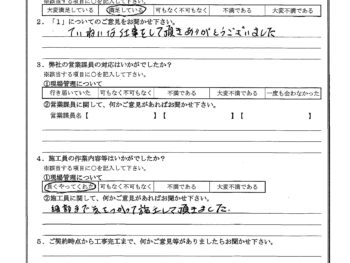 ※該当する項目に○を記入して下さい。
大変満足している 満足している 可もなく不可もなく 不満である 大変不満である
2．「1」についてのご意見をお聞かせ下さい。
ていねいな仕事をして頂きありがとうございました
3．弊社の営業課員の対応はいかがでしたか？
※該当する項目に○を記入して下さい。
①現場管理について
行き届いていた 可もなく不可もなく 不満である 大変不満である 一度も会わなかった
②営業課員に関して、何かご意見があればお聞かせ下さい。
営業課員名【 】【 】【 】
4．施工員の作業内容等はいかがでしたか？
※該当する項目に○を記入して下さい。
①現場管理について
良くやってくれた 可もなく不可もなく 不満である 大変不満である
②施工員に関して、何かご意見があればお聞かせ下さい。
細部まで気をつかって施工して頂きました.
5．ご契約時点から工事完工まで、何かご意見等がありましたらお聞かせ下さい。